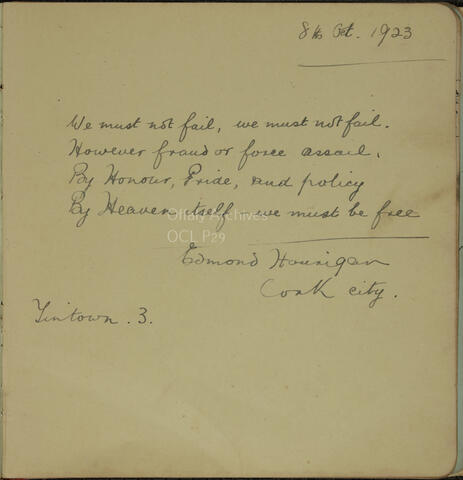 8th Oct. 1923
We must not fail, we must not fail.
However fraud or force assail,
By Honour, Pride, and policy
By Heaven itself we must be free
Offaly Archives
OCL P29
Edmond Hourigan
Cork city.
Tintown. 3.